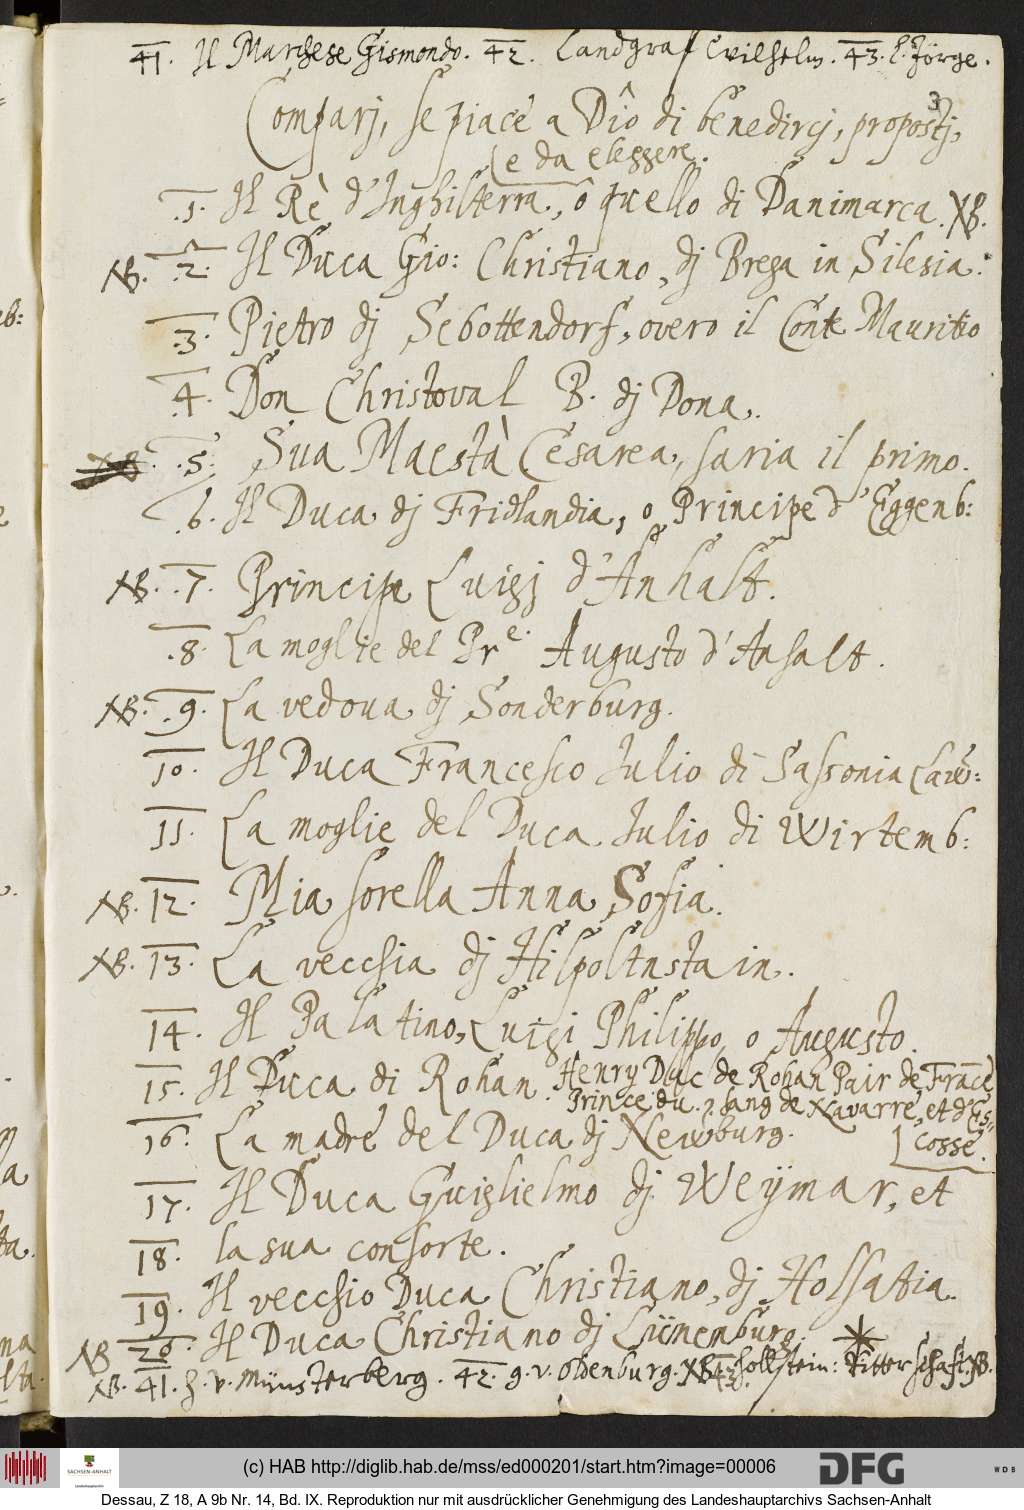 41. Il Marchese Gismondo. 42. Landgraf Wilhelm. 43. l. Jörge.
3
Comparj, se piace a Dio di benedircj, propostj,
e da eleggere.
1. Il Rè d'Inghilterra, ô quello di Danimarca. NB.
NB. 2. Il Duca Gio: Christiano, dj Brega in Silesia.
3. Pietro dj Sebottendorf, overo il Conte Mauritio
4. Don Christoval B. dj Dona.
NB. 5. Sua Maestà Cesarea, saria il primo.
6. Il Duca dj Fridlandia, o Principe d'Eggenb:
NB. 7. Principe Luigj d'Anhalt.
8. La moglie del Pr.e Augusto d'Anhalt.
NB. 9. La vedova dj Sonderburg.
10. Il Duca Francesco Julio di Sassonia Law:
11. La moglie del Duca Julio di Wirtemb:
NB. 12. Mia sorella Anna Sofia.
NB. 13. La vecchia dj Hilpoltnstain.
14. Il Palatino, Luigi Philippo, o Augusto.
15. Il Duca di Rohan. Henry Duc de Rohan Pair de France
Prince du sang de Navarre, et d'Es=
cosse.
16. La madre del Duca dj Newburg.
17. Il Duca Guiglielmo dj Weÿmar, et
18. la sua consorte.
19. Il vecchio Duca Christiano, dj Holsatia.
NB 20. Il Duca Christiano dj Lünenburg.
NB. 41. h. v. Münsterberg. 42. g. v. Oldenburg. NB 43. Hollstein: Ritterschaft. NB.
(c) HAB http://diglib.hab.de/mss/ed000201/start.htm?image=00006
SACHSEN-ANHALT
Landeshauptarchiv
DFG
WDB
Dessau, Z 18, A 9b Nr. 14, Bd. IX. Reproduktion nur mit ausdrücklicher Genehmigung des Landeshauptarchivs Sachsen-Anhalt